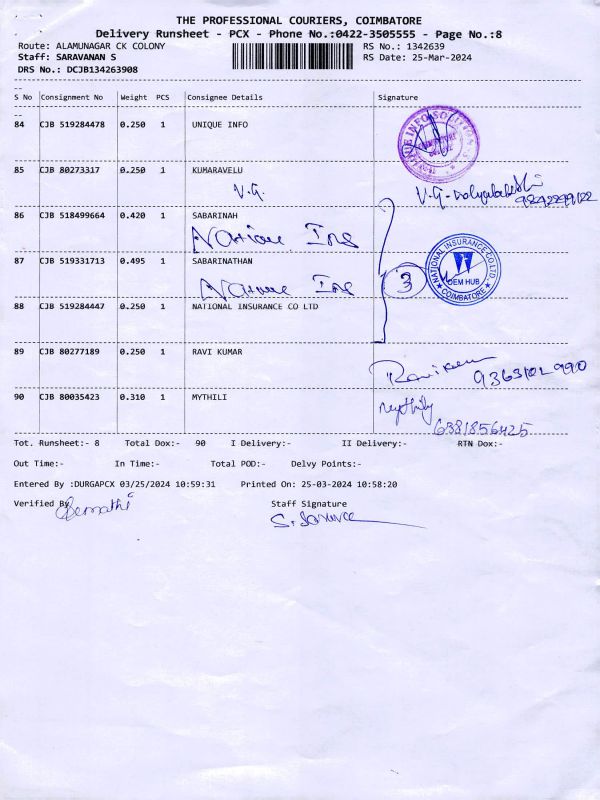 THE PROFESSIONAL COURIERS, COIMBATORE
Delivery Runsheet - PCX - Phone No.:0422-3505555 - Page No.:8
Route: ALAMUNAGAR CK COLONY RS No.: 1342639
Staff: SARAVANAN S RS Date: 25-Mar-2024
DRS No.: DCJB134263908
S No Consignment No Weight PCS Consignee Details Signature
84 CJB 519284478 0.250 1 UNIQUE INFO
85 CJB 80273317 0.250 1 KUMARAVELU
V.G. V.G.
9842299122
86 CJB 518499664 0.420 1 SABARINAH
Nation Ins
87 CJB 519331713 0.495 1 SABARINATHAN
NATIONAL INSURANCE CO LTD
OEM HUB
COIMBATORE
Nation Ins 3
88 CJB 519284447 0.250 1 NATIONAL INSURANCE CO LTD
89 CJB 80277189 0.250 1 RAVI KUMAR
Ravikum 9363102990
90 CJB 80035423 0.310 1 MYTHILI
Mythily
6381856425
Tot. Runsheet:- 8 Total Dox:- 90 I Delivery:- II Delivery:- RTN Dox:-
Out Time:- In Time:- Total POD:- Delvy Points:-
Entered By :DURGAPCX 03/25/2024 10:59:31 Printed On: 25-03-2024 10:58:20
Verified By Staff Signature